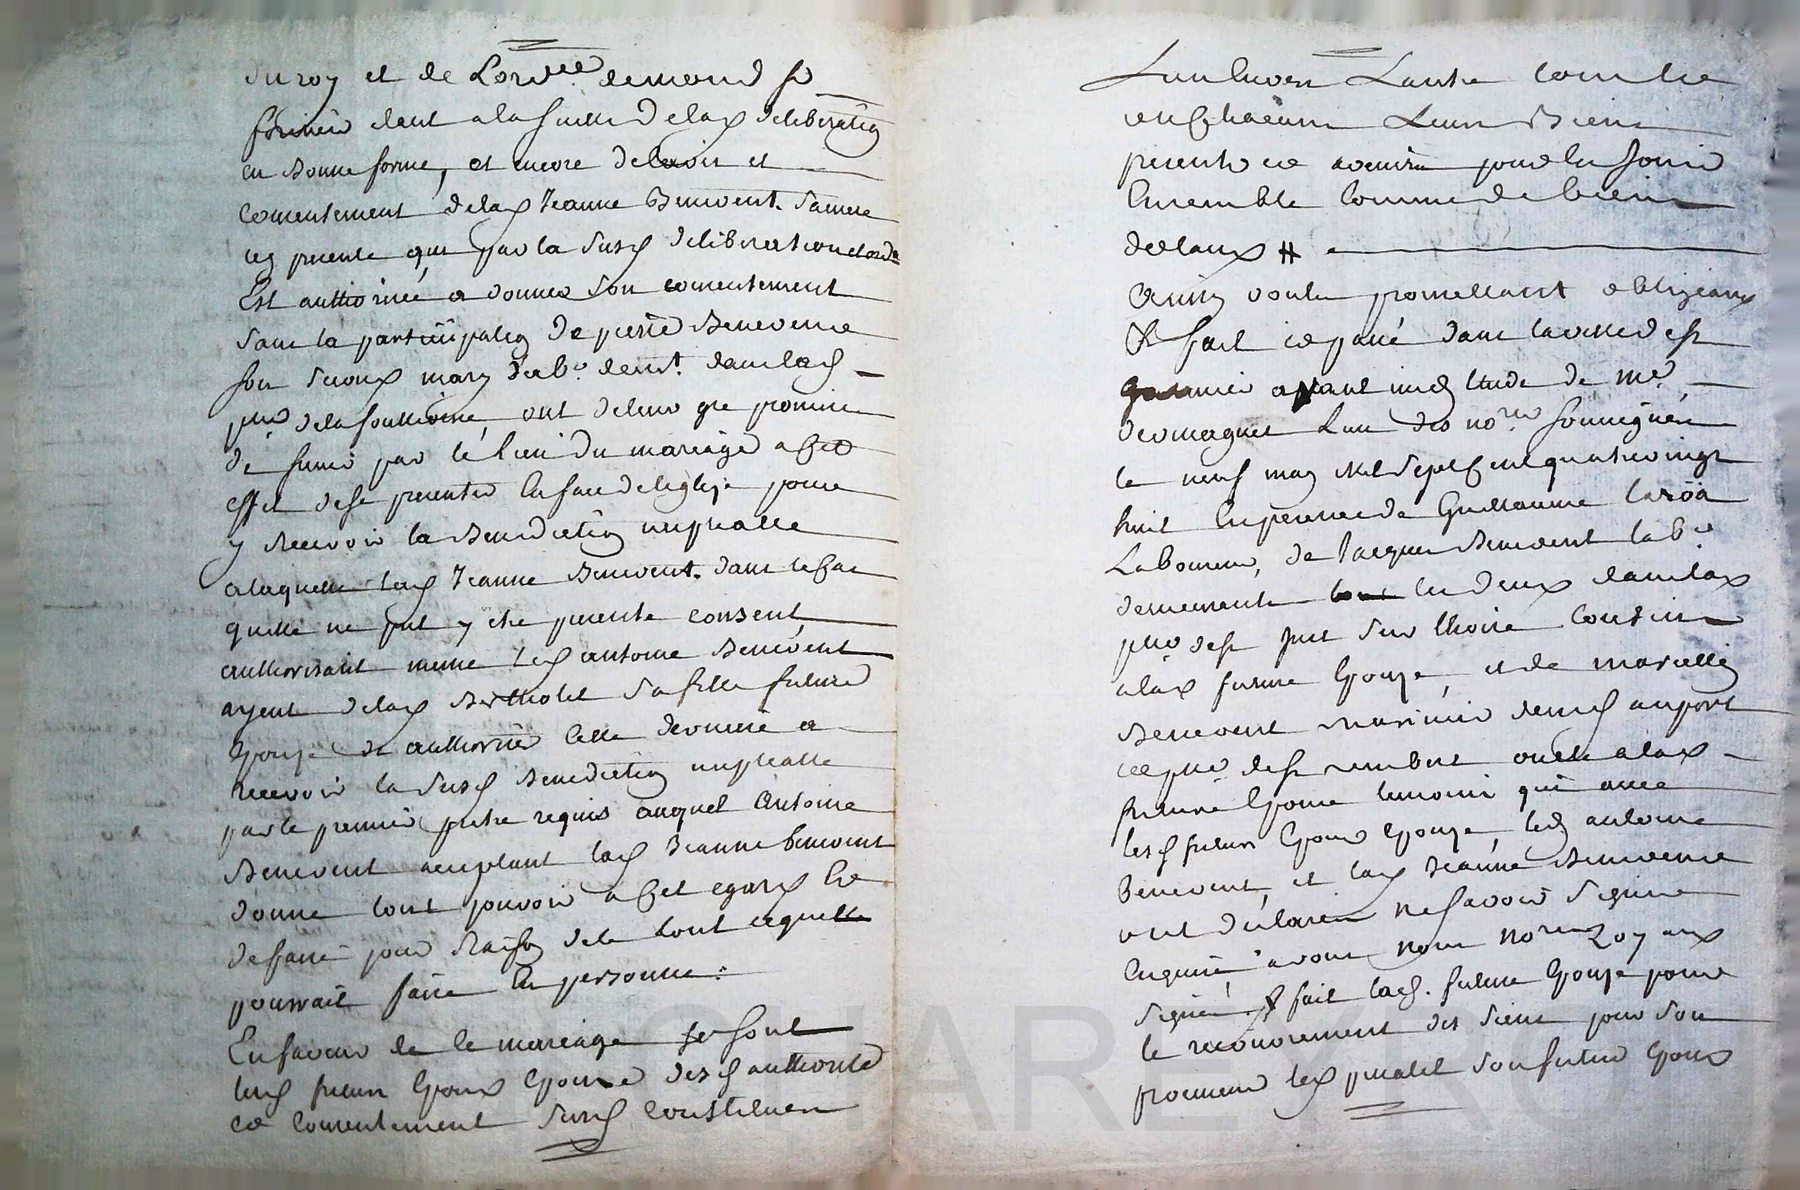 du roy et de Lord.ce de mond s.r
fermier dont a la suitte de lad deliberation
en bonne forme, et encore de lavis et
consentement de lad Jeanne Benevent. sa mere
icy presente qui par la susd deliberation et ord.ce
Est authorisée a donner son consentement
sans la participation de pierre Benevent
son second mary lab.r dem.t dans lad
p.sse de la ont de leur gre promis
de sunir par le lien du mariage a cet
effet de se presenter en face de leglise pour
y recevoir la Benediction nuptialle
a laquelle lad Jeanne Benevent. dans le cas
quelle ne put y etre presente consent
authorisant meme led antoine Benevent
ayeul de lad Bertholet sa fille future
Epouse de authoriser cette derniere a
recevoir la susd Benediction nuptialle
par le premier pretre requis auquel Antoine
Benevent acceptant lad Jeanne benevent
donne tout pouvoir a cet egard Et
de faire pour raison de ce tout ce quelle
pourrait faire En personne.
En faveur de ce mariage se sont
lesd futurs Epoux Epouse desd authorité
et consentement susd constitués
Lun Envers Lautre touts Et
un chacuns Leurs Biens
presents et avenir pour En Jouir
Ensemble comme de biens
dotaux #
Ainsy voulu promettant obligeant
fait et passé dans la ville de st
avant midy Etude de me.
demaguet Lun des no.res soussignés
le neuf may mil sept Cent quatre vingt
huit En presence de Guillaume
Laboureur, de Jacques Benevent lab.r
demeurants les deux dans lad
p.sse de st Just sur Loire cousins
a lad future Epouse, et de marcellin
Benevent marinier dem.t au port
et p.sse de st rambert oncle a lad
future Epouse temoins qui avec
lesd futurs Epoux Epouse, led antoine
Benevent, et lad Jeanne Benevent
ont declarés ne scavoir signer
Enquis avons nous no.res Royaux
signés, fait lad. future Epouse pour
le recouvrement des siens pour son
procureur led son futur Epoux
CHAREYRO